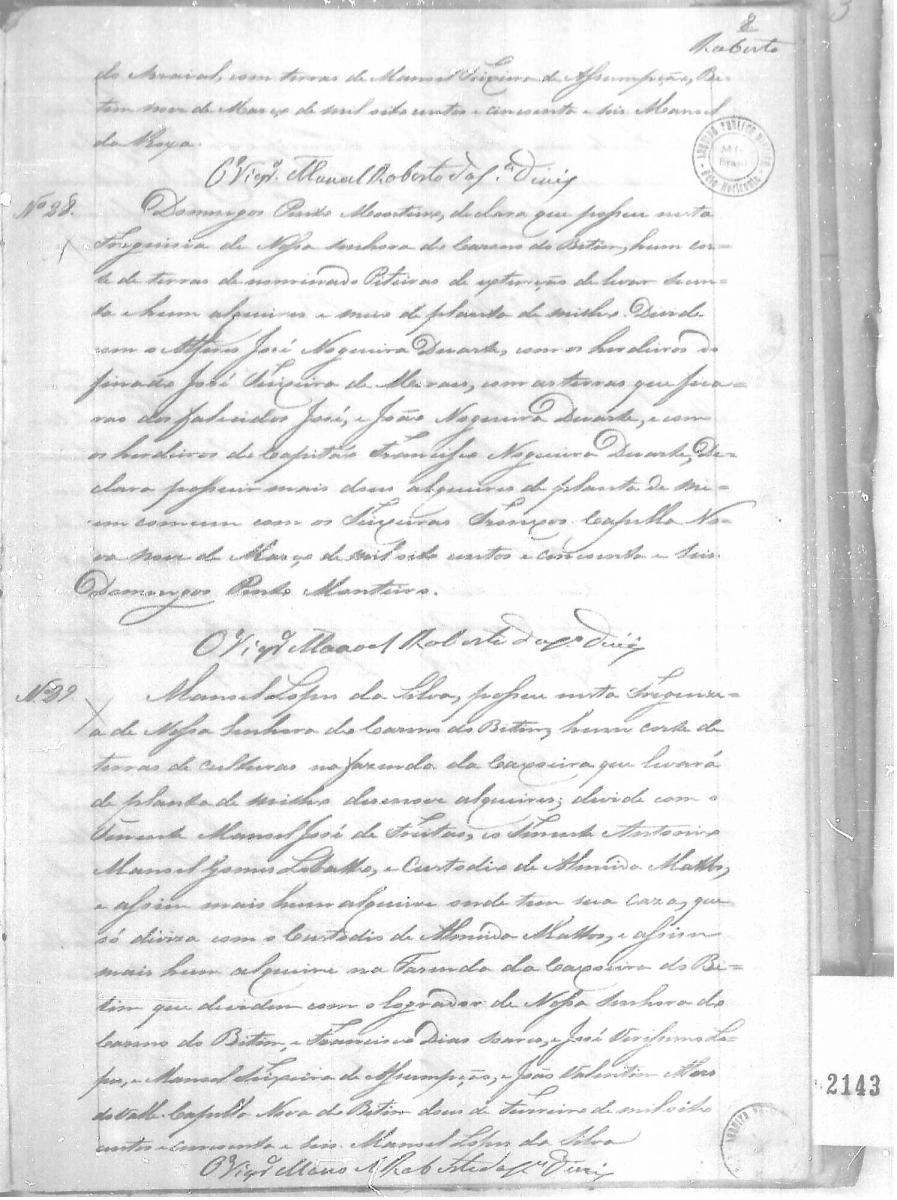 8
Roberto
do Arraial, com terras de Manoel Teixeira de Assumpção, Be-
tim nove de Março de mil oito centos e cincoenta e seis Manoel
da Roxa.
O Vigrº. Manoel Roberto da Sª Diniz
Nº 28.
Domingos Pinto Monteiro, declara que possue nesta
Freguisia de Nossa Senhora do Carmo do Betim, hum cor-
te de terras denominado Piteiras de extenção de levar secen-
ta e hum alqueires e meio de planta de milho. Devide
com o Alferes José Nogueira Duarte, com os herdeiros do
finado José Teixeira de Moraes, com as terras que fica-
rão dos falecidos José, e João Nogueira Duarte, e com
os herdeiros do Capitão Francisco Nogueira Duarte, De-
clara possuir mais dous alqueires de planta de mi-
em comum com os Teixeiras Capella No-
va nove de Março de mil oito centos e cincoenta e seis
Domingos Pinto Monteiro.
O Vigrº Manoel Roberto da Sª Diniz
Nº 29.
Manoel Lopes da Silva, possue nesta Fregueze-
a de Nossa Senhora do Carmo do Betim, hum corte de
terras de culturas na fazenda da Caxoeira que levará
de planta de milho desenove alqueires; devide com o
Tenente Manoel José de Freitas, e o Tenente Antonio
Manoel Gomes Lobatto, e Custodio de Almeida Mattos,
e assim mais hum alqueire onde tem sua caza, que
só diviza com o Custodio de Almeida Mattos, e assim
mais hum alqueire na Fazenda da Caxoeira do Be-
tim que devidem com o logrador de Nossa Senhora do
Carmo do Betim, e Francisco Dias Soares, e José Verissimo Lo-
pes, e Manoel Teixeira de Assumpção, e João Valentim
do Valle. Capella Nova do Betim dous de Fevereiro de mil oito
centos e cincoenta e seis. Manoel Lopes da Silva
O Vigrº Manoel Roberto da Sª Diniz
ARQUIVO PUBLICO MINEIRO
M.G.
Brasil
Belo Horizonte
2143